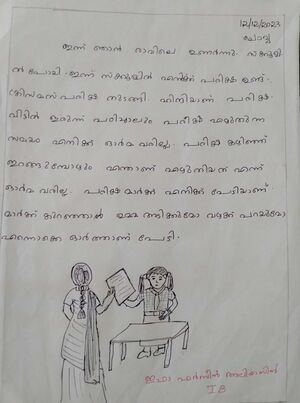 12/12/2023
ചൊവ്വ
ഇന്ന് ഞാൻ രാവിലെ ഉണർന്നു. സ്കൂളി
ൽ പോയി. ഇന്ന് സ്കൂളിൽ എനിക്ക് പരീക്ഷ ഉണ്ട്.
ക്രിസ്മസ് പരീക്ഷ തുടങ്ങി. ഹിന്ദിയാണ് പരീക്ഷ.
വീട്ടിൽ ഇരുന്ന് പഠിച്ചാലും പരീക്ഷ എഴുതുന്ന
സമയം എനിക്ക് ഓർമ്മ വരില്ല. പരീക്ഷ കഴിഞ്ഞ്
ഇറങ്ങുമ്പോഴും എന്താണ് എഴുതിയത് എന്ന്
ഓർമ്മ വരില്ല. പരീക്ഷ മാർക്ക് എനിക്ക് പേടിയാണ്
മാർക്ക് കുറഞ്ഞാൽ ഉമ്മ അടിക്കുമോ വഴക്ക് പറയുമോ
എന്നൊക്കെ ഓർത്താണ് പേടി.
ഇഫാ ഫർസീൻ
I B